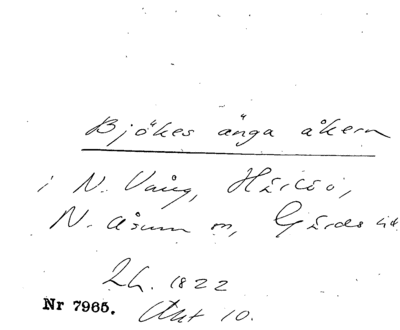 Bjökes änga åkern
i N. Vång, Härlöv,
N. Åsum m, Gärds hd.
Lh. 1822
Nr 7965. Akt 10.